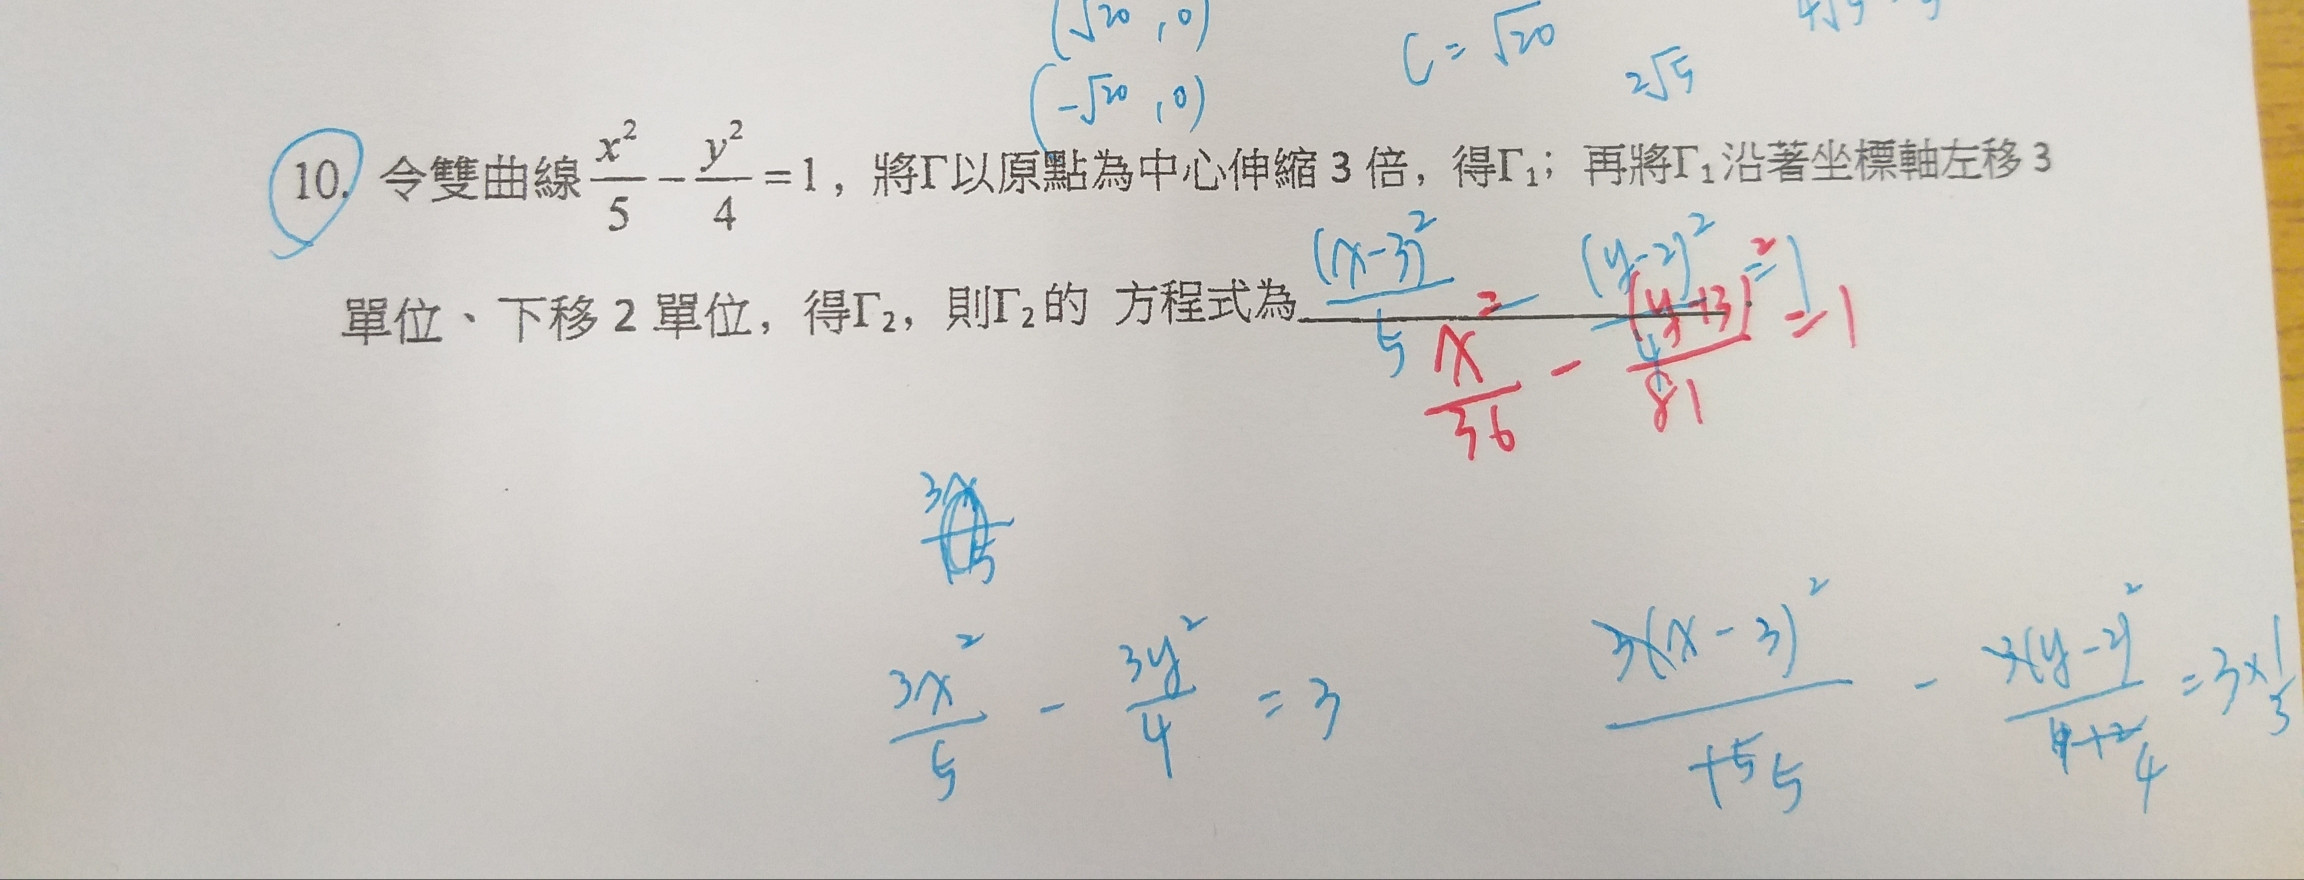 (√20 , 0)
(-√20 , 0)
C = √20
2√5
10. 令雙曲線 x²/5 - y²/4 = 1，將Γ以原點為中心伸縮 3 倍，得Γ₁；再將Γ₁沿著坐標軸左移 3
單位、下移 2 單位，得Γ₂，則Γ₂的 方程式為
(x-3)²/5 - (y-2)²/4 = 1
x²/36 - (y+3)²/81 = 1
3x² / 5 - 3y² / 4 = 3
3(x-3)² / 5 - 3(y-2)² / 4 = 3×1/3